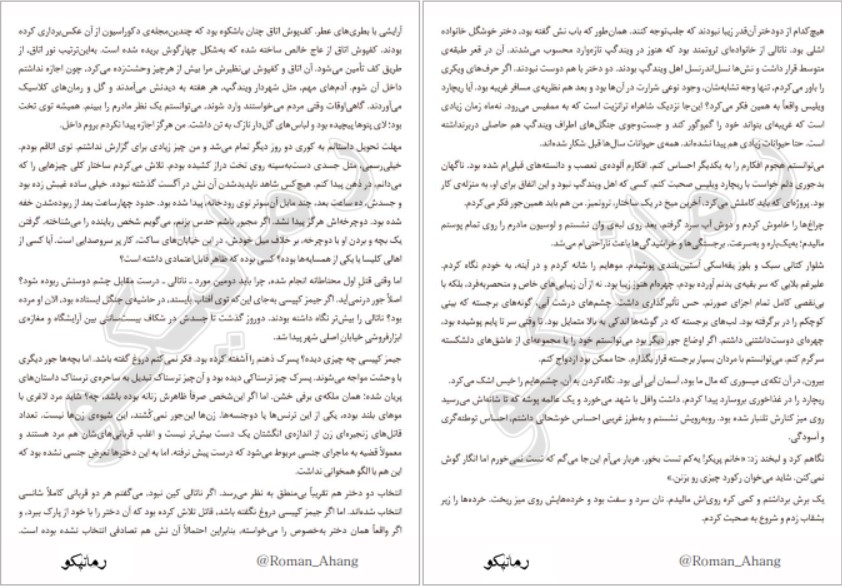 آرایشی با بطری‌های عطر. کف‌پوش اتاق چنان باشکوه بود که چندین‌مجله‌ی دکوراسیون از آن عکس‌برداری کرده
بودند. کفپوش اتاق از عاج خالص ساخته شده که به‌شکل چهارگوش بریده شده است. به‌این‌ترتیب نور اتاق، از
طریق کف تأمین می‌شود. آن اتاق و کفپوش بی‌نظیرش مرا بیش از هرچیز وحشت‌زده می‌کرد، چون اجازه نداشتم
داخل آن شوم. آدم‌های مهم، مثل شهردار ویندگپ، هر هفته به دیدنش می‌آمدند و گل و رمان‌های کلاسیک
می‌آوردند. گاهی‌اوقات وقتی مردم می‌خواستند وارد شوند، می‌توانستم یک نظر مادرم را ببینم. همیشه توی تخت
بود؛ لای پتوها پیچیده بود و لباس‌های گل‌دار نازک به تن داشت. من هرگز اجازه پیدا نکردم بروم داخل.
مهلت تحویل داستانم به کوری دو روز دیگر تمام می‌شد و من چیز زیادی برای گزارش نداشتم. توی اتاقم بودم.
خیلی‌رسمی، مثل جسدی دست‌به‌سینه روی تخت دراز کشیده بودم. تلاش می‌کردم ساختار کلی چیزهایی را که
می‌دانم، در ذهن پیدا کنم. هیچ‌کس شاهد ناپدیدشدن آن نش در آگست گذشته نبوده. خیلی ساده غیبش زده بود
و جسدش، ده ساعت بعد، چند مایل آن‌سوتر توی رودخانه، پیدا شده بود. حدود چهارساعت بعد از ربوده‌شدن خفه
شده بود. دوچرخه‌اش هرگز پیدا نشد. اگر مجبور باشم حدس بزنم، می‌گویم شخص رباینده را می‌شناخته. گرفتن
یک بچه و بردن او با دوچرخه، بر خلاف میل خودش، در این خیابان‌های ساکت، کار پر سروصدایی است. آیا کسی از
اهالی کلیسا یا یکی از همسایه‌ها بوده؟ کسی بوده که ظاهر قابل‌اعتمادی داشته است؟
اما وقتی قتل اول محتاطانه انجام شده، چرا باید دومین مورد ـ ناتالی ـ درست مقابل چشم دوستش ربوده شود؟
اصلاً جور درنمی‌آید. اگر جیمز کپیسی به‌جای این‌که توی آفتاب بایستد، در حاشیه‌ی جنگل ایستاده بود، الان او مرده
بود؟ ناتالی را بیش‌تر نگاه داشته بودند. دوروز گذشت تا جسدش در شکاف بیست‌سانتی بین آرایشگاه و مغازه‌ی
ابزارفروشی خیابان‌اصلی شهر پیدا شد.
جیمز کپیسی چه چیزی دیده؟ پسرک ذهنم را آشفته کرده بود. فکر نمی‌کنم دروغ گفته باشد. اما بچه‌ها جور دیگری
با وحشت مواجه می‌شوند. پسرک چیز ترسناکی دیده بود و آن‌چیز ترسناک تبدیل به ساحره‌ی ترسناک داستان‌های
پریان شده؛ همان ملکه‌ی برفی خشن. اما اگر این‌شخص صرفاً ظاهرش زنانه بوده باشد، چه؟ شاید مرد لاغری با
موهای بلند بوده، یکی از این ترنس‌ها یا دوجنسه‌ها. زن‌ها این‌جور نمی‌کُشند، این شیوه‌ی زن‌ها نیست. تعداد
قاتل‌های زنجیره‌ای زن از اندازه‌ی انگشتان یک دست بیش‌تر نیست و اغلب قربانی‌های‌شان هم مرد هستند و
معمولاً قضیه به ماجرای جنسی مربوط می‌شود که درست پیش نرفته. اما به این دخترها تعرض جنسی نشده بود که
این هم با الگو همخوانی نداشت.
انتخاب دو دختر هم تقریباً بی‌منطق به نظر می‌رسد. اگر ناتالی کین نبود، می‌گفتم هر دو قربانی کاملاً شانسی
انتخاب شده‌اند. اما اگر جیمز کپیسی دروغ نگفته باشد، قاتل تلاش کرده بود که آن دختر را با خود از پارک ببرد، و
اگر واقعاً همان دختر به‌خصوص را می‌خواسته، بنابراین احتمالاً آن نش هم تصادفی انتخاب نشده بوده است.
رمانیکو
@Roman_Ahang
هیچ‌کدام از دودختر آن‌قدر زیبا نبودند که جلب‌توجه کنند. همان‌طور که باب نش گفته بود، دختر خوشگل خانواده
اشلی بود. ناتالی از خانواده‌ای ثروتمند بود که هنوز در ویندگپ تازه‌وارد محسوب می‌شدند. آن در قعر طبقه‌ی
متوسط قرار داشت و نش‌ها نسل‌اندرنسل اهل ویندگپ بودند. دو دختر با هم دوست نبودند. اگر حرف‌های ویکری
را باور می‌کردم، تنها وجه تشابه‌شان، وجود نوعی شرارت در آن‌ها بود و بعد هم نظریه‌ی مسافر غریبه بود. آیا ریچارد
ویلیس واقعاً به همین فکر می‌کرد؟ این‌جا نزدیک شاهراه ترانزیت است که به ممفیس می‌رود. نه‌ماه زمان زیادی
است که غریبه‌ای بتواند خود را گم‌وگور کند و جست‌وجوی جنگل‌های اطراف ویندگپ هم حاصلی دربرنداشته
است. حتا حیوانات زیادی هم پیدا نشده‌اند. همه‌ی حیوانات سال‌ها قبل شکار شده‌اند.
می‌توانستم هجوم افکارم را به یکدیگر احساس کنم. افکارم آلوده‌ی تعصب و دانسته‌های قبلی‌ام شده بود. ناگهان
بدجوری دلم خواست با ریچارد ویلیس صحبت کنم. کسی که اهل ویندگپ نبود و این اتفاق برای او، به منزله‌ی کار
بود. پروژه‌ای که باید کاملش می‌کرد، آخرین میخ در یک ساختار، تروتمیز. من هم باید همین‌جور فکر می‌کردم.
چراغ‌ها را خاموش کردم و دوش آب سرد گرفتم. بعد روی لبه‌ی وان نشستم و لوسیون مادرم را روی تمام پوستم
مالیدم؛ به‌یک‌باره و به‌سرعت. برجستگی‌ها و خراشیدگی‌ها باعث ناراحتی‌ام می‌شد.
شلوار کتانی سبک و بلوز یقه‌اسکی آستین‌بلندی پوشیدم. موهایم را شانه کردم و در آینه، به خودم نگاه کردم.
علیرغم بلایی که سر بقیه‌ی بدنم آورده بودم، چهره‌ام هنوز زیبا بود. نه از آن زیبایی‌های خاص و منحصربه‌فرد، بلکه با
بی‌نقصی کامل تمام اجزای صورتم. حس تأثیرگذاری داشت. چشم‌های درشت آبی، گونه‌های برجسته که بینی
کوچکم را در برگرفته بود. لب‌های برجسته که در گوشه‌ها اندکی به بالا متمایل بود. تا وقتی سر تا پایم پوشیده بود،
چهره‌ای دوست‌داشتنی داشتم. اگر اوضاع جور دیگر بود می‌توانستم خود را با مجموعه‌ای از عاشق‌های دلشکسته
سرگرم کنم. می‌توانستم با مردان بسیار برجسته قرار بگذارم. حتا ممکن بود ازدواج کنم.
بیرون، در آن تکه‌ی میسوری که مال ما بود، آسمان آبی آبی بود. نگاه‌کردن به آن، چشم‌هایم را خیس اشک می‌کرد.
ریچارد را در غذاخوری بروسارد پیدا کردم، داشت وافل با شهد می‌خورد و یک عالمه پوشه که تا شانه‌اش می‌رسید
روی میز کنارش تلنبار شده بود. روبه‌رویش نشستم و به‌طرز غریبی احساس خوشحالی داشتم، احساس توطئه‌گری
و آسودگی.
نگاهم کرد و لبخند زد: «خانم پریکر! یه‌کم تست بخور. هربار می‌آم این‌جا می‌گم که تست نمی‌خورم اما انگار گوش
نمی‌کنن. شاید می‌خوان رکورد چیزی رو بزنن.»
یک برش برداشتم و کمی کره روی‌اش مالیدم. نان سرد و سفت بود و خرده‌هایش روی میز ریخت. خرده‌ها را زیر
بشقاب زدم و شروع به صحبت کردم.
رمانیکو
@Roman_Ahang